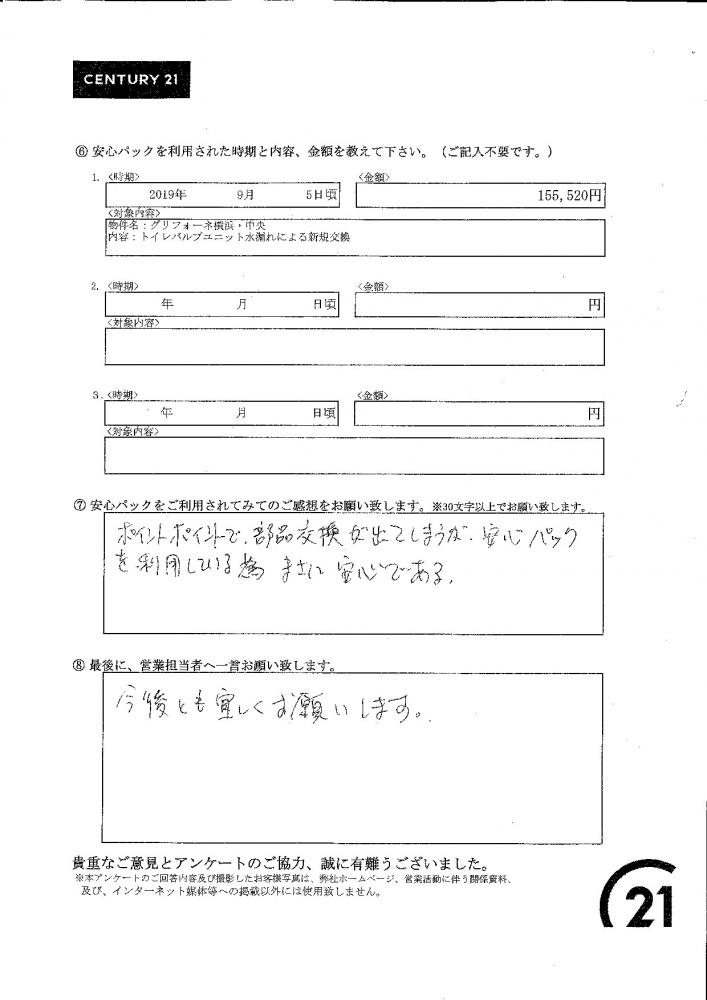 CENTURY 21
⑥ 安心パックを利用された時期と内容、金額を教えて下さい。（ご記入不要です。）
1. <時期> <金額>
2019年 9月 5日頃 155,520円
<対象内容>
物件名：グリフォーネ横浜・中央
内容：トイレバルブユニット水漏れによる新規交換
2. <時期> <金額>
年 月 日頃 円
<対象内容>
3. <時期> <金額>
年 月 日頃 円
<対象内容>
⑦ 安心パックをご利用されてみてのご感想をお願い致します。※30文字以上でお願い致します。
ポイントポイントで、部品交換が出てしまうが、安心パック
を利用している為 まさに安心である。
⑧ 最後に、営業担当者へ一言お願い致します。
今後とも宜しくお願いします。
貴重なご意見とアンケートのご協力、誠に有難うございました。
※本アンケートのご回答内容及び撮影したお客様写真は、弊社ホームページ、営業活動に伴う関係資料、
及び、インターネット媒体等への掲載以外には使用致しません。
21